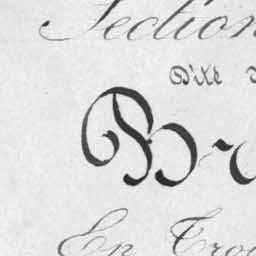 Section
Dite
Br
En Tro